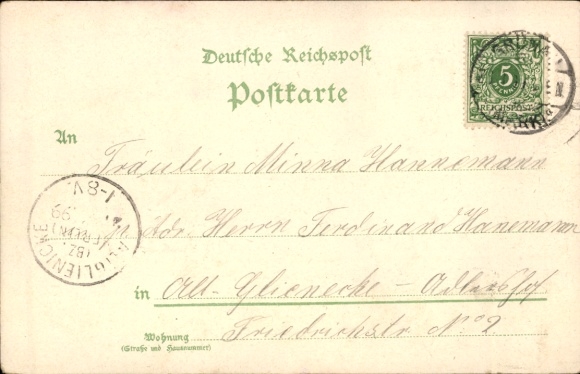 Deutsche Reichspost
Postkarte
5
PFENNIG
REICHSPOST
An
Fräulein Minna Hannemann
p. Adr. Herrn Ferdinand Hanemann
1-8N.
99
ALTGLIENICKE
(BZ.
BERLIN)
in Alt-Glienecke-Adlershof
Friedrichstr No 2
Wohnung
(Straße und Hausnummer)